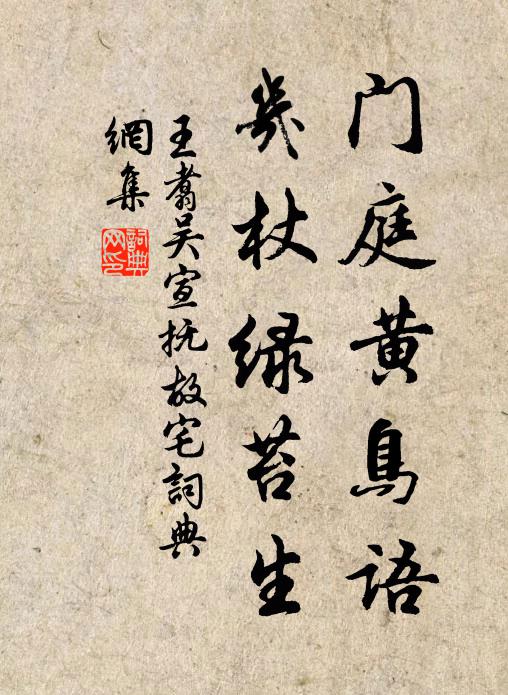 门庭黄鸟语
几杖绿苔生
王翥吴宣抚故宅詞典
網集
詞典
网印